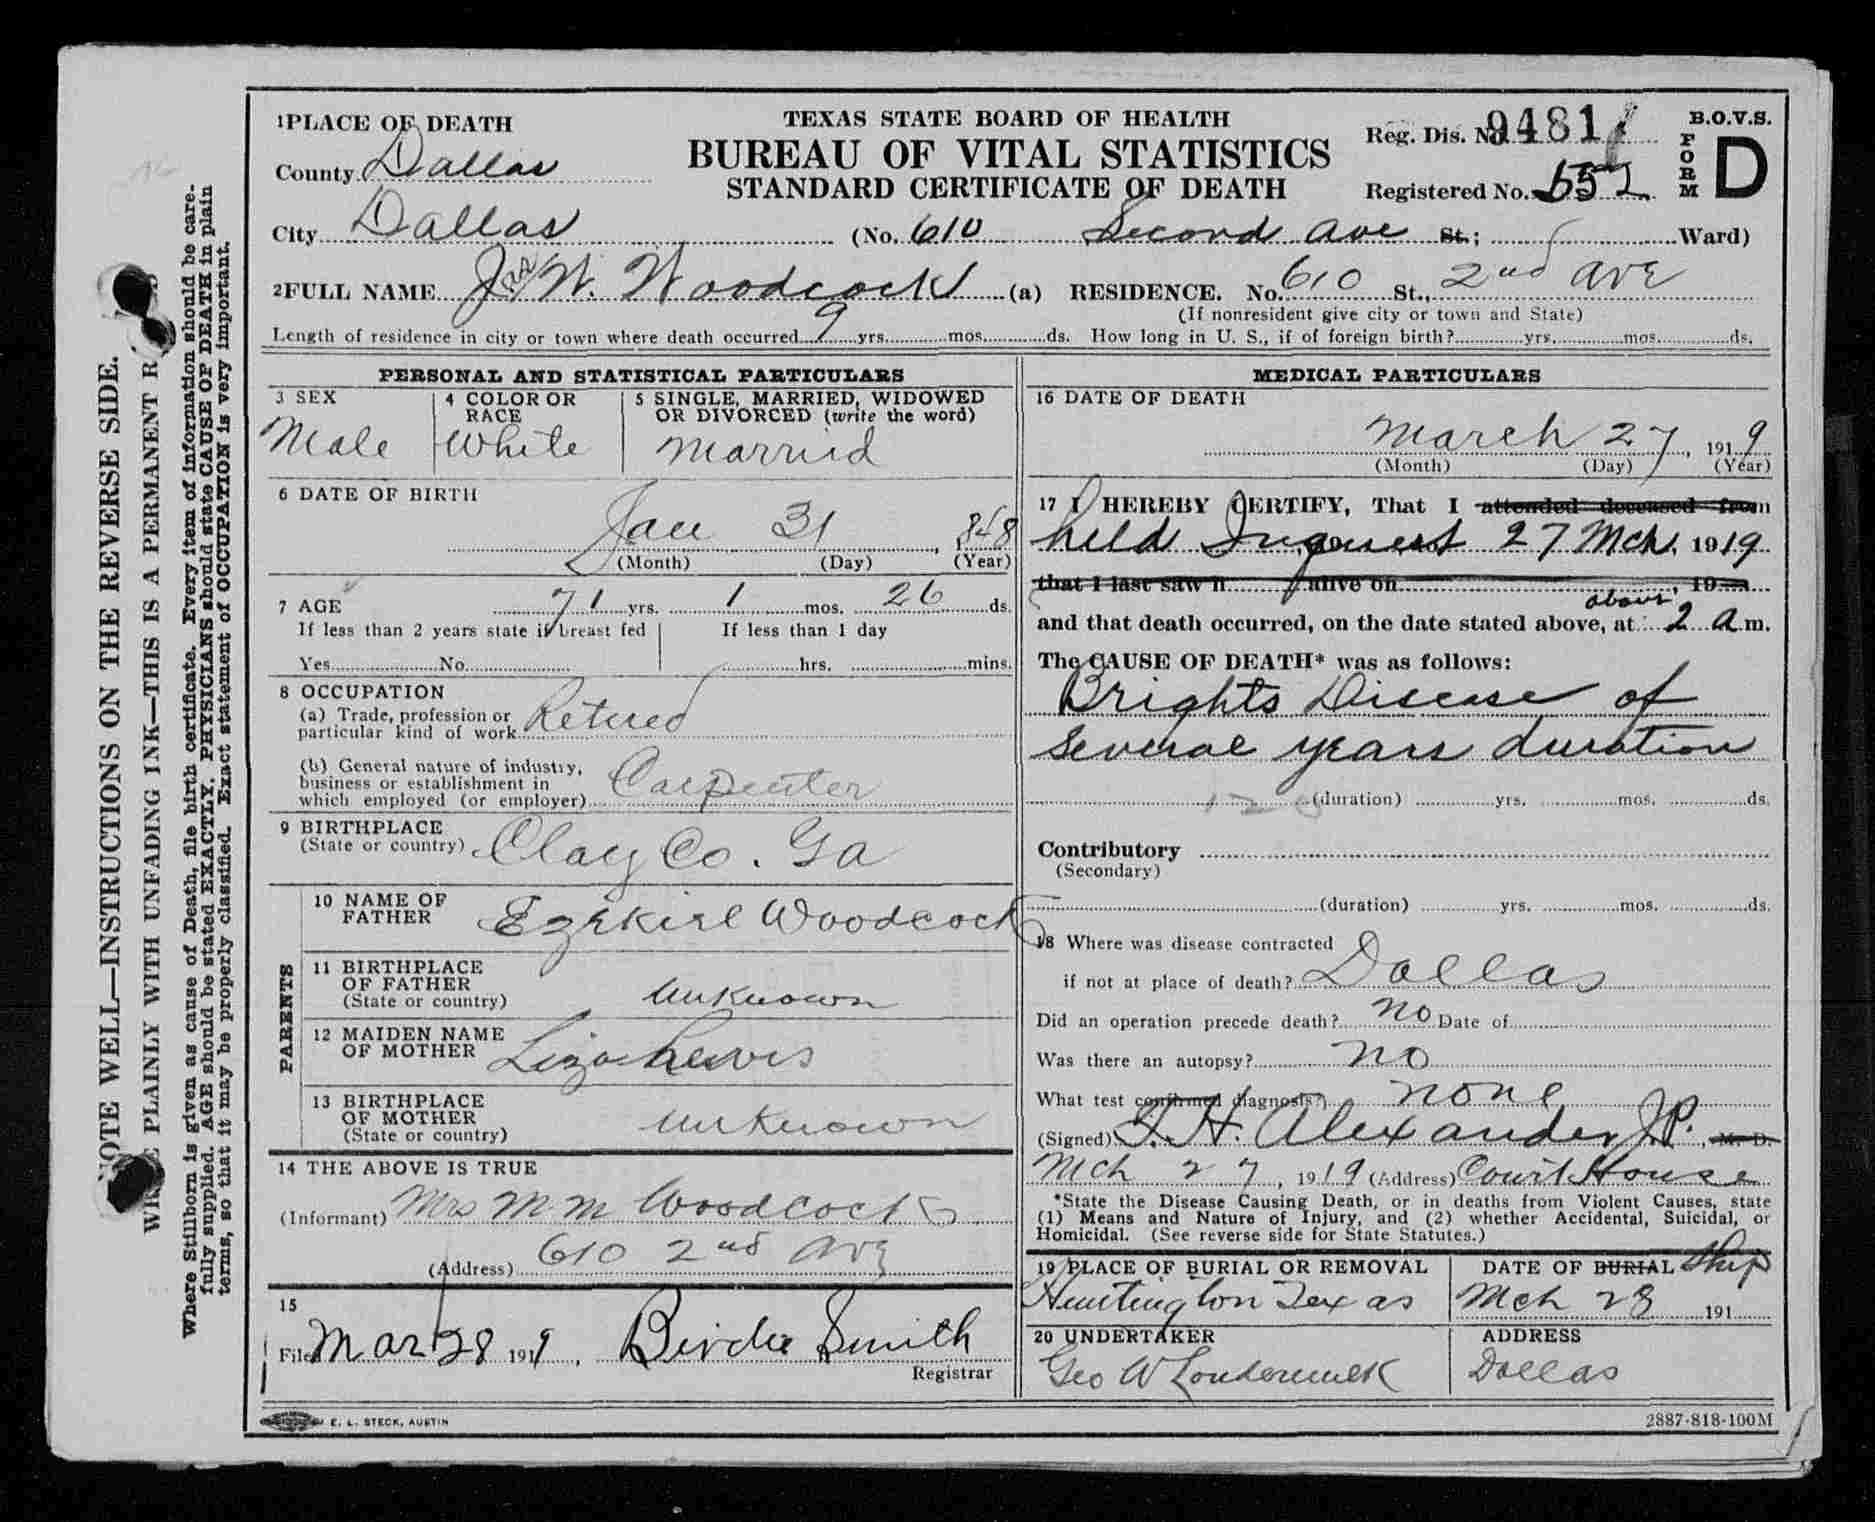 NOTE WELL—INSTRUCTIONS ON THE REVERSE SIDE.
PLAINLY WITH UNFADING INK—THIS IS A PERMANENT
Where Stillborn is given as cause of Death, file birth certificate. Every item of information should be care-
fully supplied. AGE should be stated EXACTLY. PHYSICIANS should state CAUSE OF DEATH in plain
terms, so that it may be properly classified. Exact statement of OCCUPATION is very important.
1PLACE OF DEATH
County Dallas
TEXAS STATE BOARD OF HEALTH
BUREAU OF VITAL STATISTICS
STANDARD CERTIFICATE OF DEATH
Reg. Dis. No. 9481
Registered No. 552
B.O.V.S.
FORM D
City Dallas (No. 610 Second Ave St.; Ward)
2FULL NAME J W. Woodcock (a) RESIDENCE. No. 610 St., 2nd Ave
(If nonresident give city or town and State)
Length of residence in city or town where death occurred 9 yrs. mos. ds. How long in U. S., if of foreign birth? yrs. mos. ds.
PERSONAL AND STATISTICAL PARTICULARS
3 SEX
Male
4 COLOR OR RACE
White
5 SINGLE, MARRIED, WIDOWED
OR DIVORCED (write the word)
Married
6 DATE OF BIRTH
Jan 31, 1848
(Month) (Day) (Year)
7 AGE 71 yrs. 1 mos. 26 ds.
If less than 2 years state if breast fed If less than 1 day
Yes No hrs. mins.
8 OCCUPATION
(a) Trade, profession or
particular kind of work Retired
(b) General nature of industry,
business or establishment in
which employed (or employer) Carpenter
9 BIRTHPLACE
(State or country) Clay Co. Ga
PARENTS
10 NAME OF
FATHER Ezekiel Woodcock
11 BIRTHPLACE
OF FATHER
(State or country) Unknown
12 MAIDEN NAME
OF MOTHER Liza Lewis
13 BIRTHPLACE
OF MOTHER
(State or country) Unknown
14 THE ABOVE IS TRUE
(Informant) Mrs M M Woodcock
(Address) 610 2nd Ave
15
File Mar 28 1919, Birdie Smith
Registrar
MEDICAL PARTICULARS
16 DATE OF DEATH
March 27, 1919
(Month) (Day) (Year)
17 I HEREBY CERTIFY, That I attended deceased from
held Inquest 27 Mch, 1919
that I last saw h alive on , 19
about
and that death occurred, on the date stated above, at 2 a m.
The CAUSE OF DEATH* was as follows:
Brights Disease of
several years duration
120 (duration) yrs. mos. ds.
Contributory
(Secondary)
(duration) yrs. mos. ds.
18 Where was disease contracted
if not at place of death? Dallas
Did an operation precede death? No Date of
Was there an autopsy? no
What test confirmed diagnosis? none
(Signed) T. H. Alexander J.P., M. D.
Mch 27, 1919 (Address) Court House
*State the Disease Causing Death, or in deaths from Violent Causes, state
(1) Means and Nature of Injury, and (2) whether Accidental, Suicidal, or
Homicidal. (See reverse side for State Statutes.)
19 PLACE OF BURIAL OR REMOVAL
Huntington Texas
DATE OF BURIAL Ship
Mch 28 191
20 UNDERTAKER
Geo W Loudermilk
ADDRESS
Dallas
E. L. STECK, AUSTIN
2887-818-100M